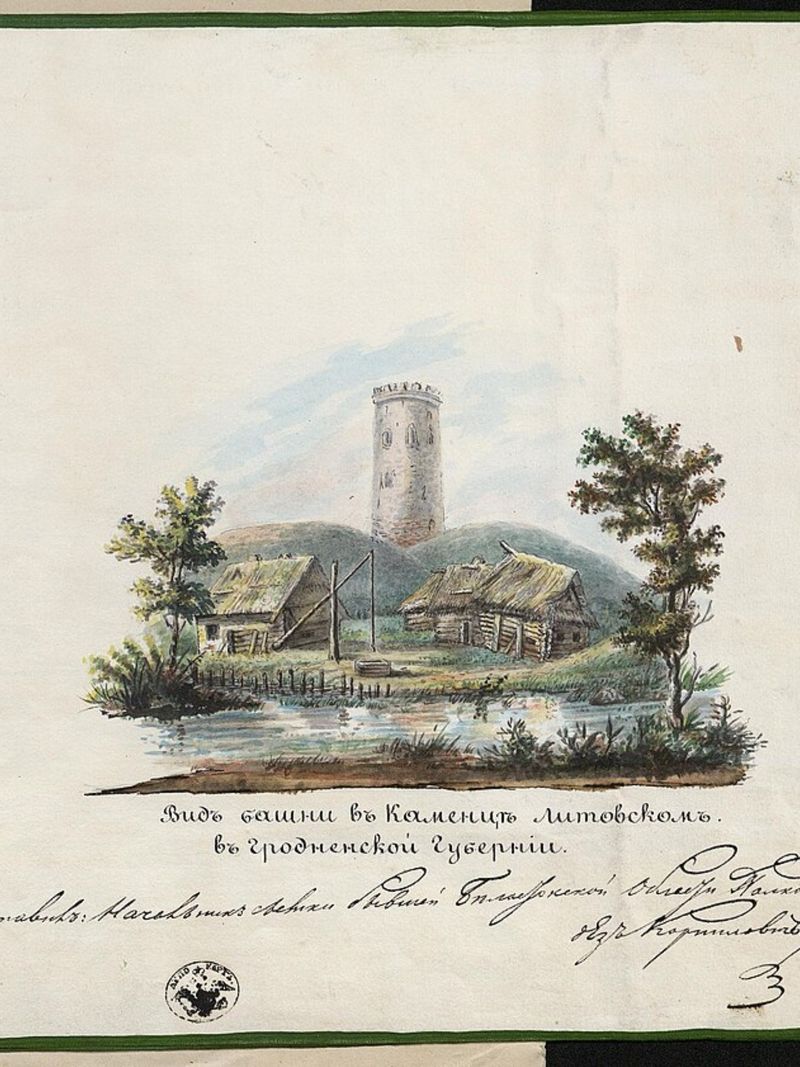 Видъ башни въ Каменцѣ Литовскомъ.
въ Гродненской Губерніи.
Начальникъ съемки бывшей Белостокской Области Полко
Корниловичъ